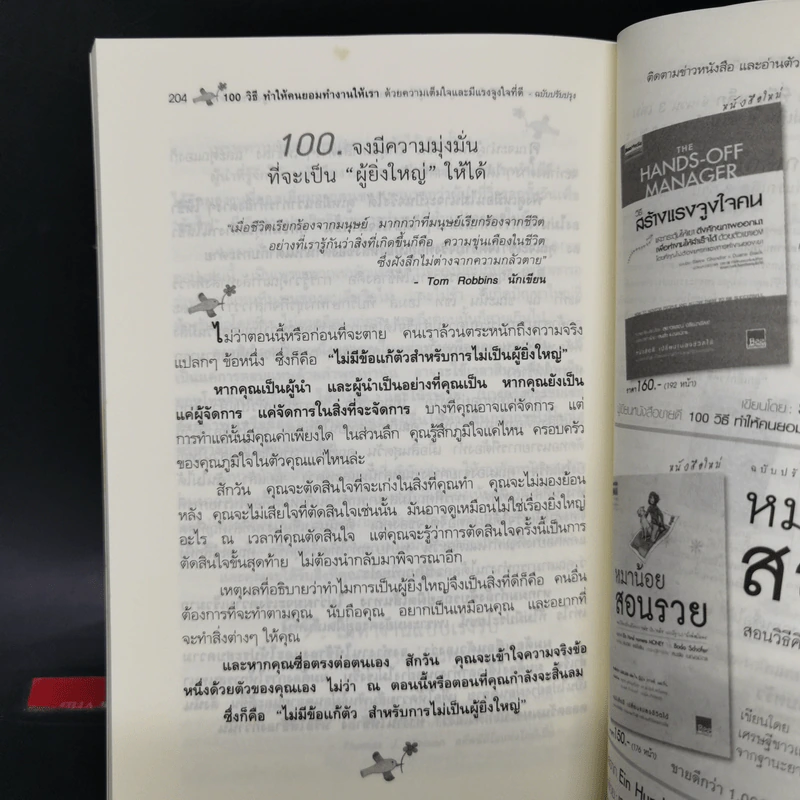 204 100 วิธี ทำให้คนยอมทำงานให้เรา ด้วยความเต็มใจและมีแรงจูงใจที่ดี - ฉบับปรับปรุง
100. จงมีความมุ่งมั่น
ที่จะเป็น “ผู้ยิ่งใหญ่” ให้ได้
“เมื่อชีวิตเรียกร้องจากมนุษย์ มากกว่าที่มนุษย์เรียกร้องจากชีวิต
อย่างที่เรารู้กันว่าสิ่งที่เกิดขึ้นก็คือ ความขุ่นเคืองในชีวิต
ซึ่งฝังลึกไม่ต่างจากความกลัวตาย”
- Tom Robbins นักเขียน
ไม่ว่าตอนนี้หรือก่อนที่จะตาย คนเราล้วนตระหนักถึงความจริง
แปลกๆ ข้อหนึ่ง ซึ่งก็คือ “ไม่มีข้อแก้ตัวสำหรับการไม่เป็นผู้ยิ่งใหญ่”
หากคุณเป็นผู้นำ และผู้นำเป็นอย่างที่คุณเป็น หากคุณยังเป็น
แค่ผู้จัดการ แค่จัดการในสิ่งที่จะจัดการ บางทีคุณอาจแค่จัดการ แต่
การทำแค่นั้นมีคุณค่าเพียงใด ในส่วนลึก คุณรู้สึกภูมิใจแค่ไหน ครอบครัว
ของคุณภูมิใจในตัวคุณแค่ไหนล่ะ
สักวัน คุณจะตัดสินใจที่จะเก่งในสิ่งที่คุณทำ คุณจะไม่มองย้อน
หลัง คุณจะไม่เสียใจที่ตัดสินใจเช่นนั้น มันอาจดูเหมือนไม่ใช่เรื่องยิ่งใหญ่
อะไร ณ เวลาที่คุณตัดสินใจ แต่คุณจะรู้ว่าการตัดสินใจครั้งนี้เป็นการ
ตัดสินใจขั้นสุดท้าย ไม่ต้องนำกลับมาพิจารณาอีก
เหตุผลที่อธิบายว่าทำไมการเป็นผู้ยิ่งใหญ่จึงเป็นสิ่งที่ดีก็คือ คนอื่น
ต้องการที่จะทำตามคุณ นับถือคุณ อยากเป็นเหมือนคุณ และอยากที่
จะทำสิ่งต่างๆ ให้คุณ
และหากคุณซื่อตรงต่อตนเอง สักวัน คุณจะเข้าใจความจริงข้อ
หนึ่งด้วยตัวของคุณเอง ไม่ว่า ณ ตอนนี้หรือตอนที่คุณกำลังจะสิ้นลม
ซึ่งก็คือ “ไม่มีข้อแก้ตัว สำหรับการไม่เป็นผู้ยิ่งใหญ่”
ติดตามข่าวหนังสือ และอ่านตัว
หนังสือใหม่
THE
HANDS-OFF
MANAGER
วิธี
สร้างแรงจูงใจคน
ราคา 160.- (192 หน้า)
เขียนโดย :
ผู้เขียนหนังสือขายดี 100 วิธี ทำให้คนยอม
หนังสือใหม่
ฉบับปรั
หมา
ส
หมาน้อย
สอนรวย
สอนวิธีคิ
150.- (176 หน้า)
เขียนโดย
เศรษฐีชาวเ
จากฐานะยา
ขายดีกว่า 1,00
Ein Hun